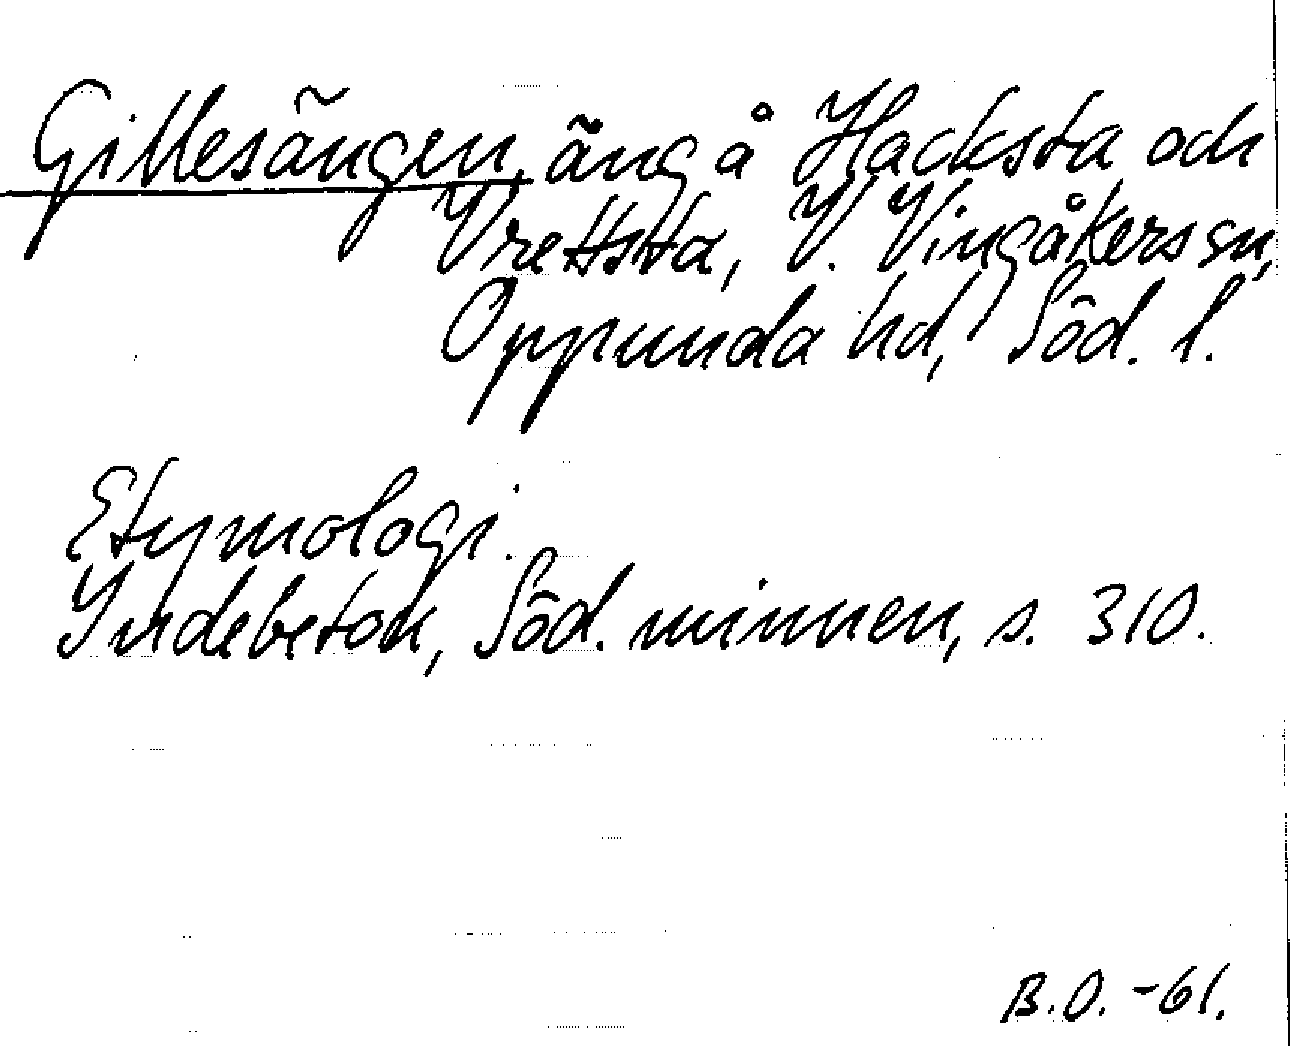 Gillesängen, äng å Hacksta och
Vrettsta, V. Vingåkers sn,
Oppunda hd, Söd. l.
Etymologi.
Indebetou, Söd. minnen, s. 310.
B.O. -61.